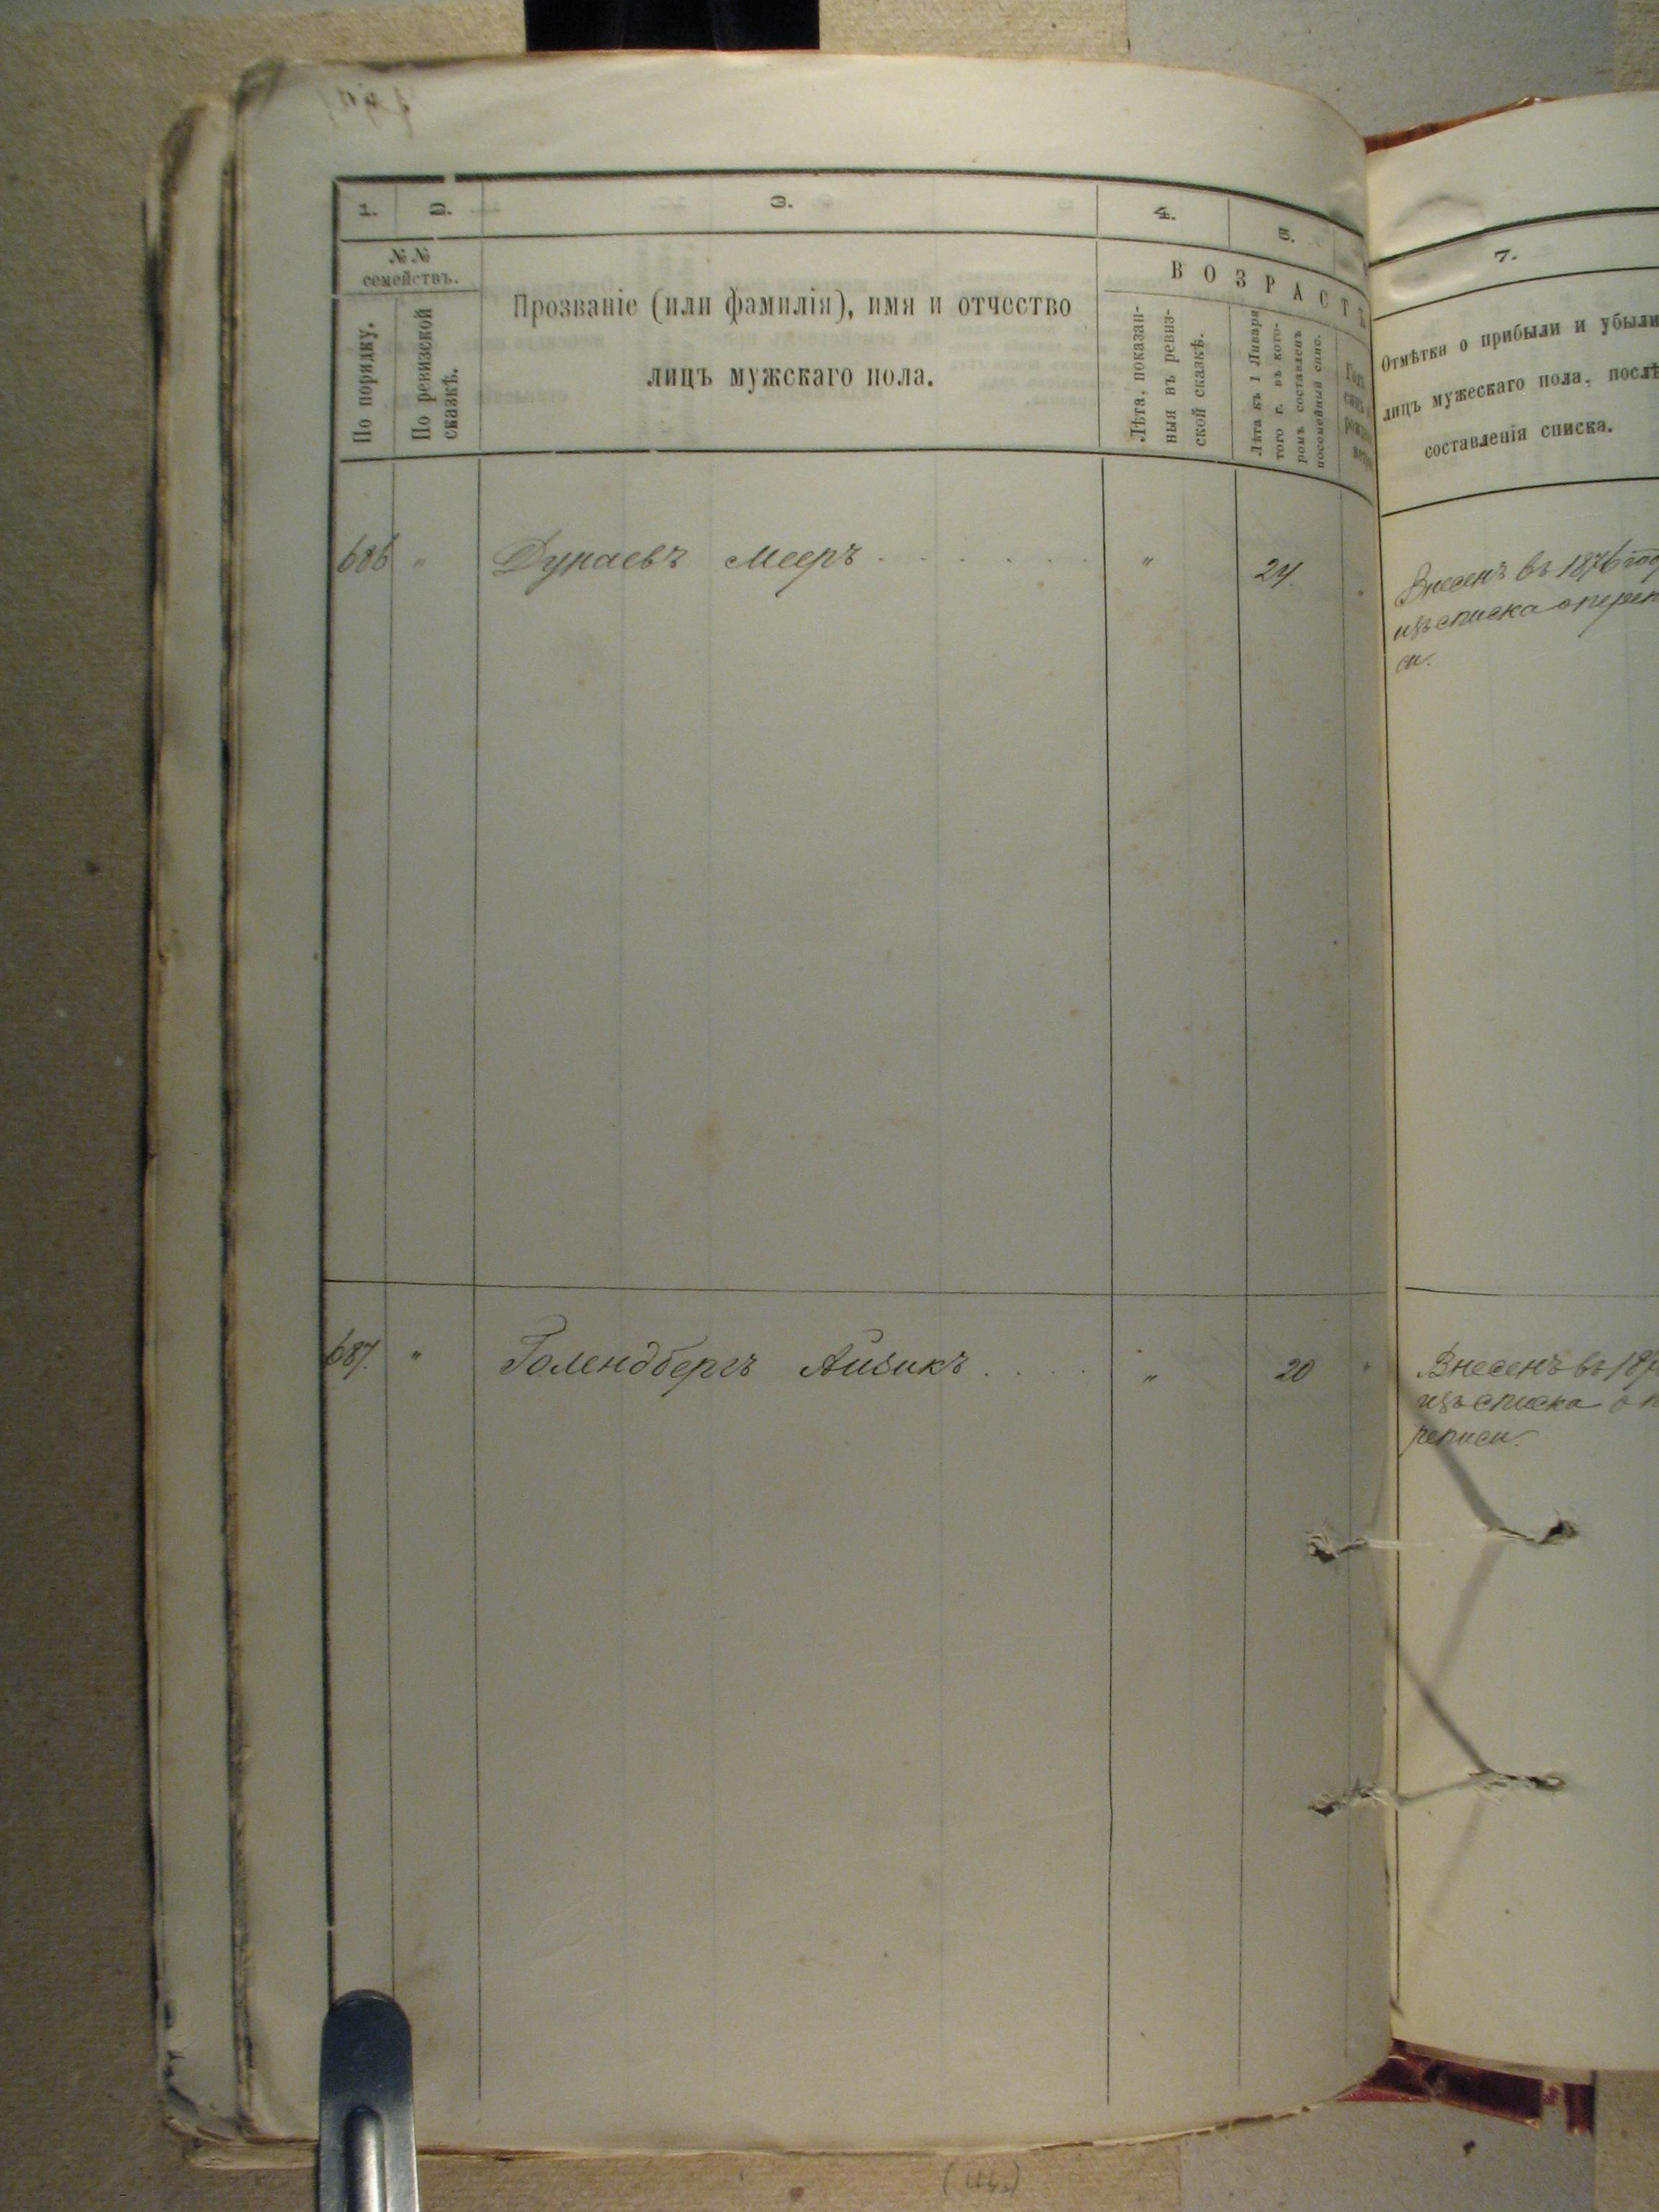 1. 2. 3. 4. 5. 7.
№ №
семействъ.
По порядку.
По ревизской
сказкѣ.
Прозваніе (или фамилія), имя и отчество
лицъ мужскаго пола.
ВОЗРАСТЪ
Лѣта, показан-
ныя въ ревиз-
ской сказкѣ.
Лѣта къ 1 Января
того г. въ кото-
ромъ составленъ
посемейный спис.
Отмѣтка о прибыли и убыли
лицъ мужескаго пола, послѣ
составленія списка.
686 " Дунаевъ Мееръ . . . . . . . " 24.
Внесенъ въ 1876 год
изъ списка о переп
си.
687. " Голендбергъ Айзикъ . . . . . " 20 "
Внесенъ въ 187
изъ списка о п
реписи.